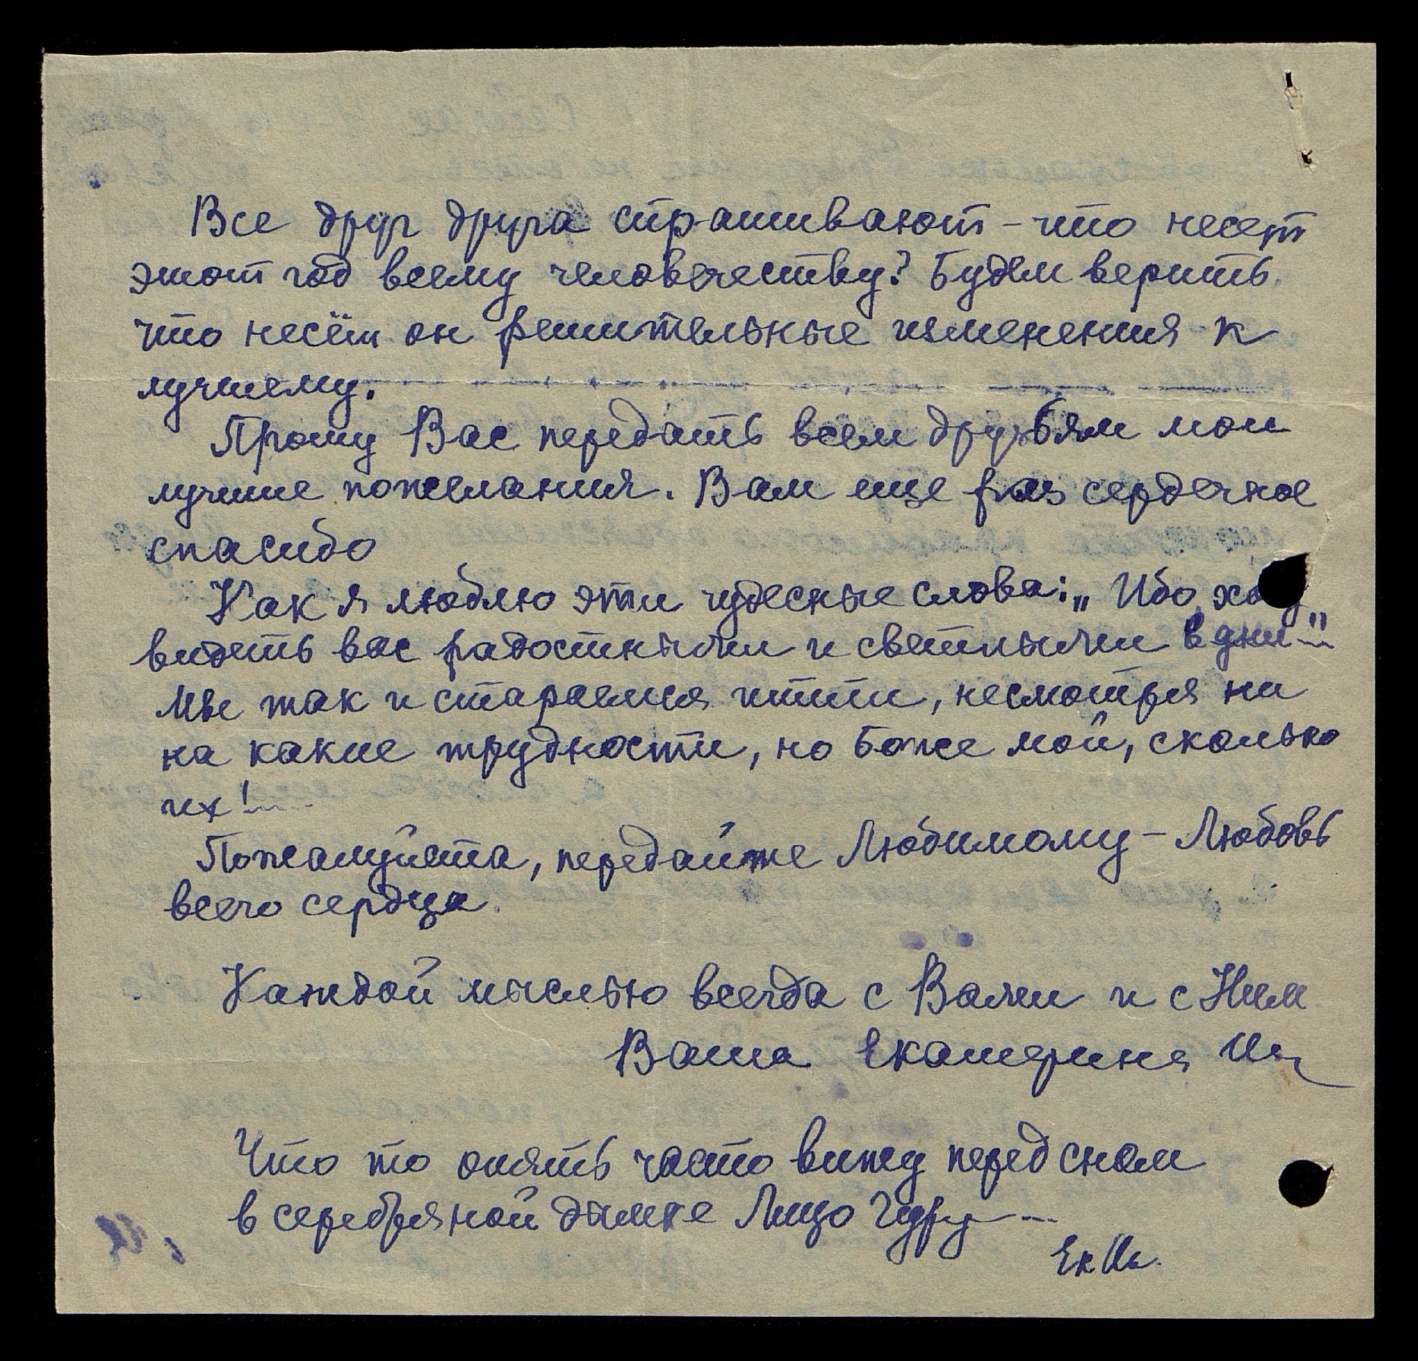 Все друг друга спрашивают – что несет
этот год всему человечеству? Будем верить,
что несёт он решительные изменения к
лучшему.
Прошу Вас передать всем друзьям мои
лучшие пожелания. Вам еще раз сердечное
спасибо
Как я люблю эти чудесные слова: „Ибо
видеть вас радостными и светлыми в дни..."
Мы так и стараемся итти, несмотря ни
на какие трудности, но Боже мой, сколько
их!...
Пожалуйста, передайте Любимому – Любовь
всего сердца.
Каждой мыслью всегда с Вами и с Ним
Ваша Екатерина
Что то опять часто вижу перед сном
в серебряной дымке Лицо Гуру – ...
Ек Ив.